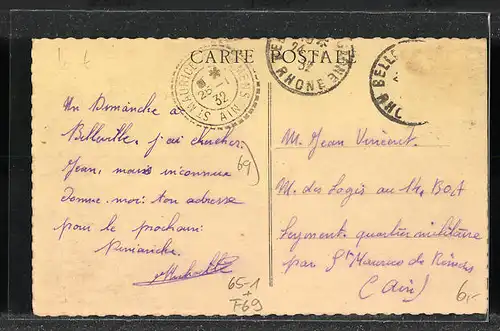 CARTE POSTALE
ST MAURICE DE REMENS AIN
26
32
BELLE
RHONE
24
32
BELLE
RHO
Un Dimanche à
Belleville, j'ai chercher
Jean, mais inconnu
donne-moi ton adresse
pour le prochain
Dimanche.
69
M. Jean Vincent
M. des Logis au 14e B.O.A
Leyment quartier militaire
par St Maurice de Rémens
(Ain)
65-1
+
F69
6,-